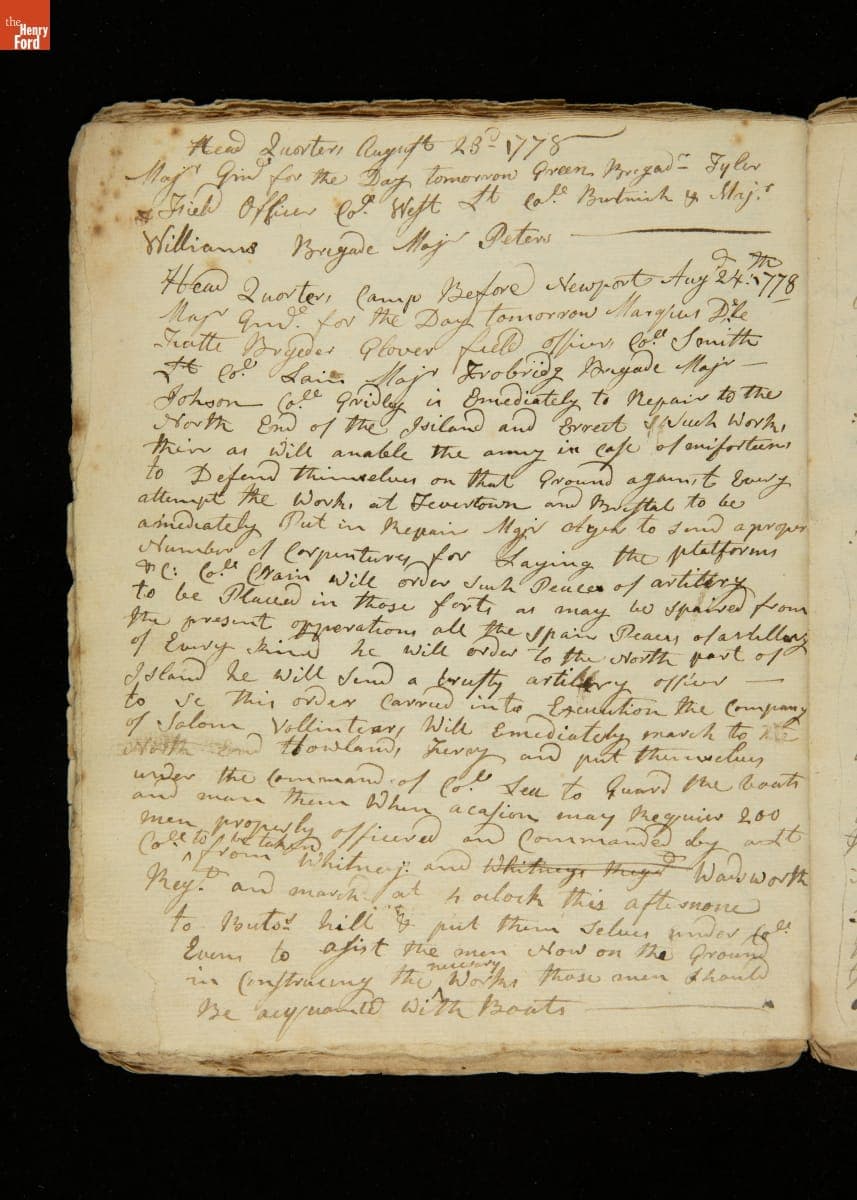 the Henry Ford
Head Quorters August 23d 1778
Majr Ginl for the Day tomorrow Green Brigadr Tyler
& Field Officer Col. West Lt Cole Butnick & Majr
Williams Brigade Majr Peters
Head Quorters Camp Before Newport Augd 24th 1778
Majr Genl. for the Day tomorrow Marqius Dle
Fratte Brigeder Glover field officers Coll Smith
Lt Col. Majr Trobridg Brigade Majr
Johson Cole Gridley is Emediately to Repair to the
North End of the Isiland and Errect Such Works
their as Will anable the army in Case of misfortuns
to Defend themselves on that Ground against Every
attempt the Works at Tevertown and Bristol to be
amediately Put in Repair Majr to send a proper
Number of Corpentures for Laying the platforms
&C: Coll Crain Will order such Peaces of artilery
to be Placed in those forts as may be Spaired from
the present opperations all the Spair Peaces of artillery
of Every kind he will order to the North part of
Island he Will Send a trusty artillery officer
to se this order Carried into Execution the Company
of Salom Vollintears Will Emediately march to the
North End Howlands Ferry and put themselves
under the Command of Coll to Guard the boats
and man them When acasion may Requier 200
men properly officered and Commanded by a Lt
Coll to be taken from Whitneys and Whitneys Regt Wadworth
Regt. and march at 4 oClock this afternone
to Buttsn hill & put them selves under Coll
Evens to asist the men Now on the Ground
in Constructing the necesary Works those men Should
Be acquanted With Boats